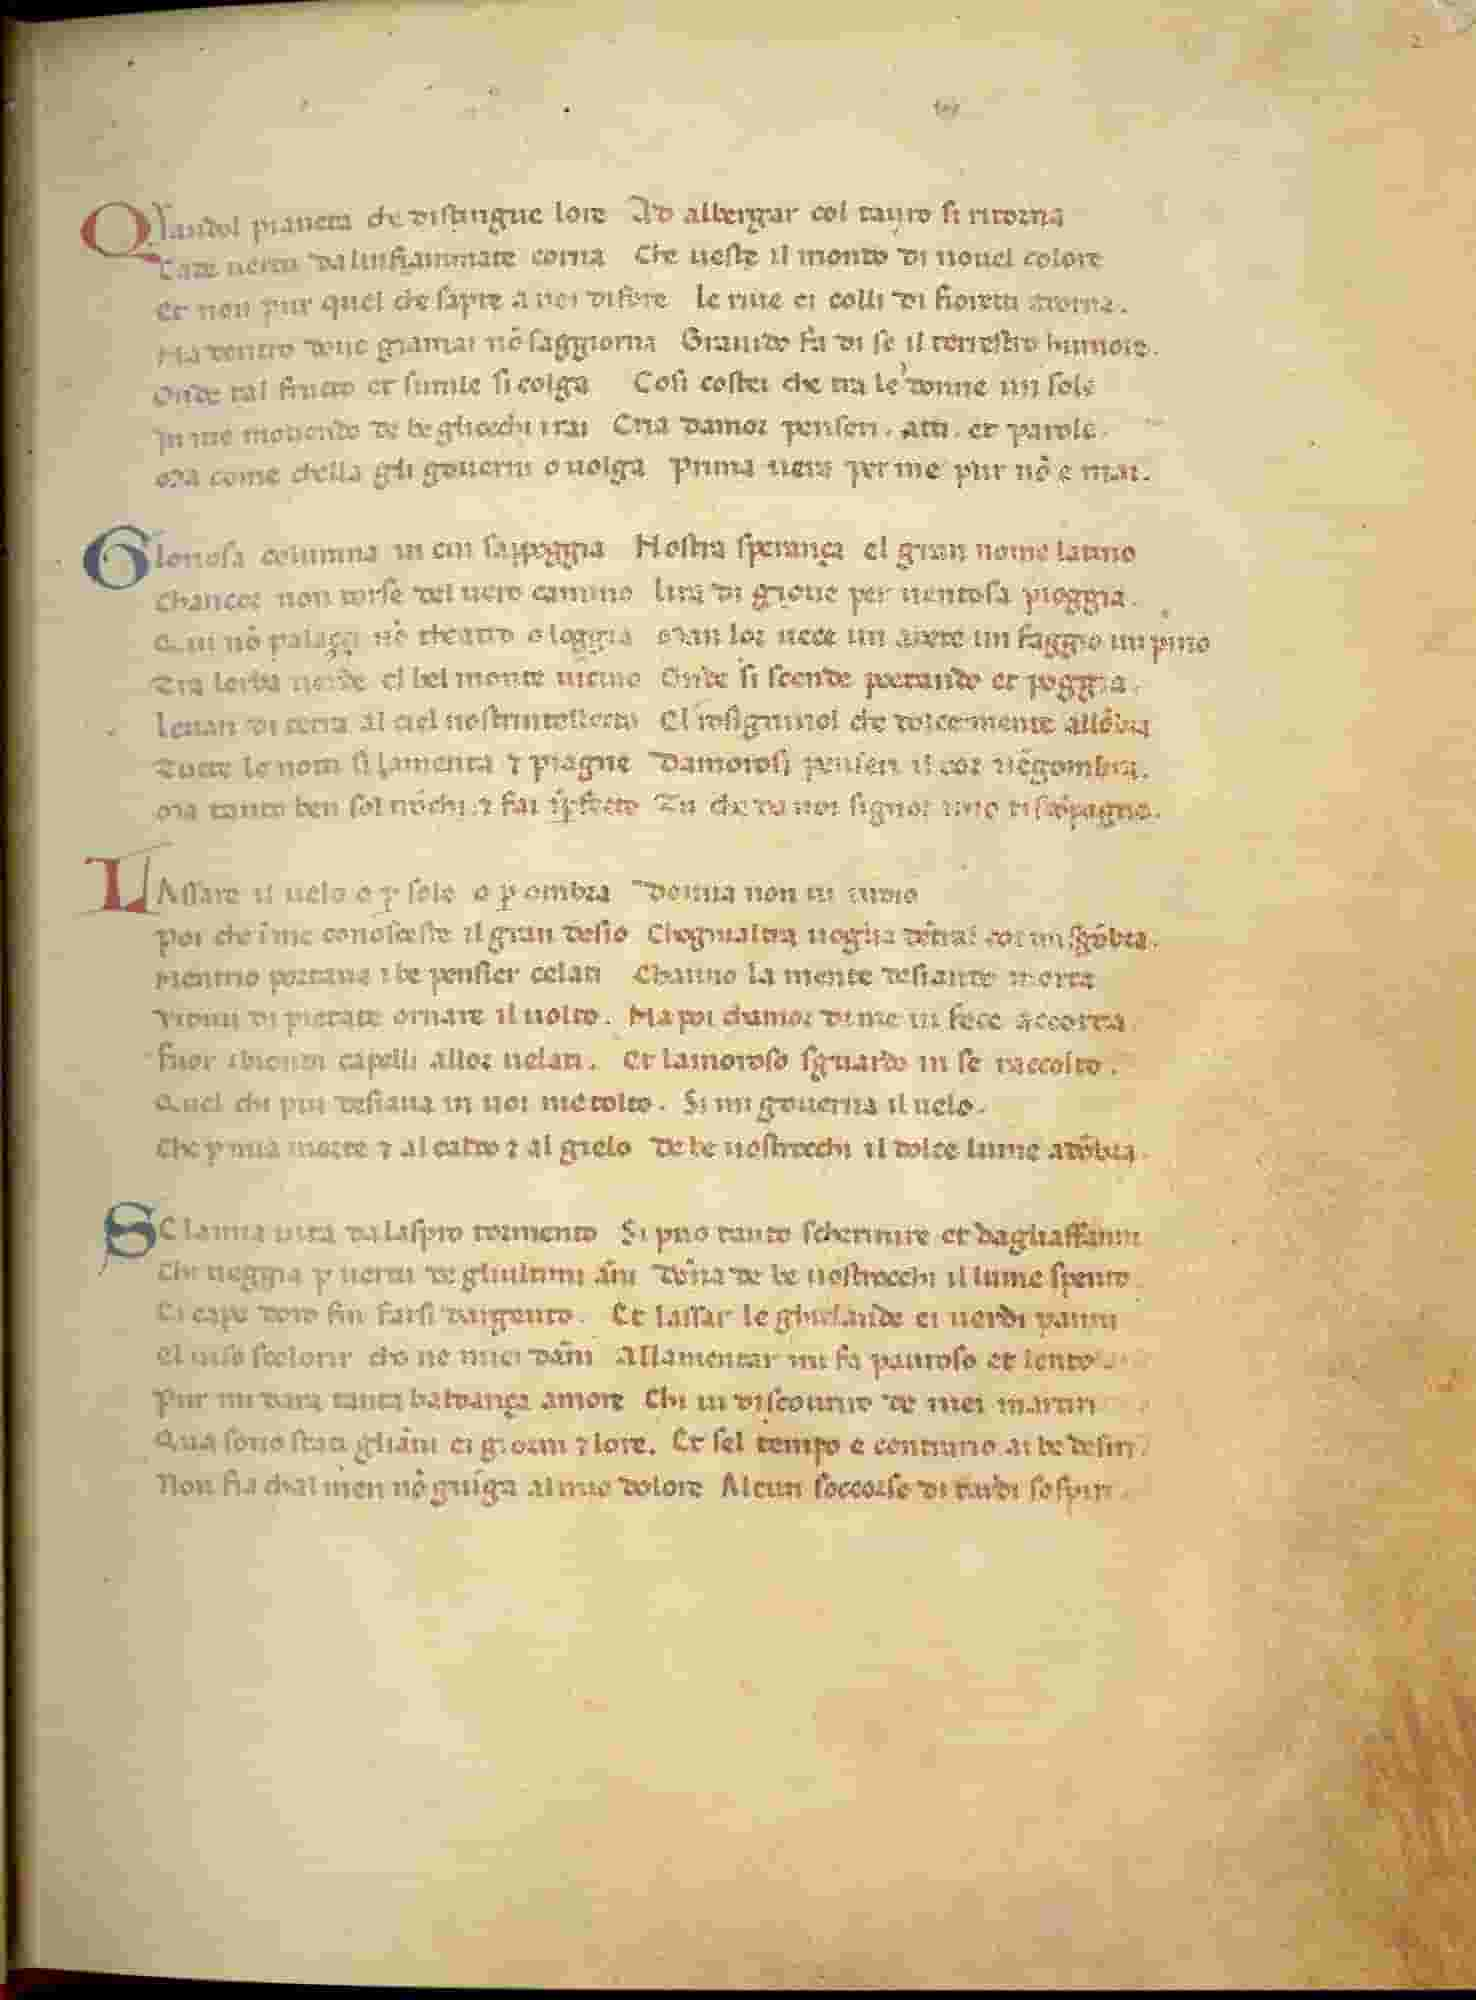 2
QVandol pianeta che distingue lore Ad albergar col tauro si ritorna
Cade uertu dalinfiammate corna Che ueste il mondo di nouel colore
Et non pur quel che sapre a noi difore le riue ei colli di fioretti adorna.
Ma dentro doue giamai nō saggiorna Grauido fa di se il terrestro humore.
Onde tal fructo et simile si colga Cosi costei che tra le donne un sole
In me mouendo de be gliocchi irai Cria damor penseri. atti. et parole.
Ma come chella gli gouerni o uolga Prima uera per me pur nō e mai.
Gloriosa columna in cui sappoggia Nostra sperança el gran nome latino
Chancor non torse del uero camino lira di gioue per uentosa pioggia.
Qui nō palaççi nō theatro o loggia Man lor uece un abete un faggio un pino
Tra lerba uerde el bel monte uicino Onde si scende poetando et poggia.
Leuan di terra al ciel nostrintellecto El rosigniuol che dolcemente allōbra
Tutte le notti si lamenta ⁊ piagne Damorosi penseri il cor nēgombra.
Ma tanto ben sol trōchi. ⁊ fai īꝑfecto Tu che da noi signor mio ti scōpagne.
LAssare il uelo o ꝑ sole o ꝑ ombra Donna non ui uidio
Poi che ī me conosceste il gran desio Chogni altra uoglia dētral cor mi sgōbra.
Mentrio portaua i be pensier celati Channo la mente desiando morta
Vidiui di pietate ornare il uolto. Ma poi chamor di me ui fece accorta
Fuor i biondi capelli allor uelati. Et lamoroso sguardo in se raccolto.
Quel chi piu desiaua in uoi mē tolto. Si mi gouerna il uelo.
Che ꝑ mia morte ⁊ al caldo ⁊ al gielo De be uostrocchi il dolce lume adōbra.
SE lamia uita da laspro tormento Si puo tanto schermire et dagliaffanni
Chi ueggia ꝑ uertu de gliultimi āni Dōna de be uostrocchi il lume spento
Ei cape doro fin farsi dargento. Et lassar le ghirlande ei uerdi panni
El uiso scolorir che ne miei dāni Allamentar mi fa pauroso et lento.
Pur mi dara tanta baldança amore Chi ui discouriro de mei martiri
Qua sono stati gliāni ei giorni ⁊ lore. Et sel tempo e contrario ai be desiri.
Non fia chal men nō giūga al mio dolore Alcun soccorso di tardi sospiri.